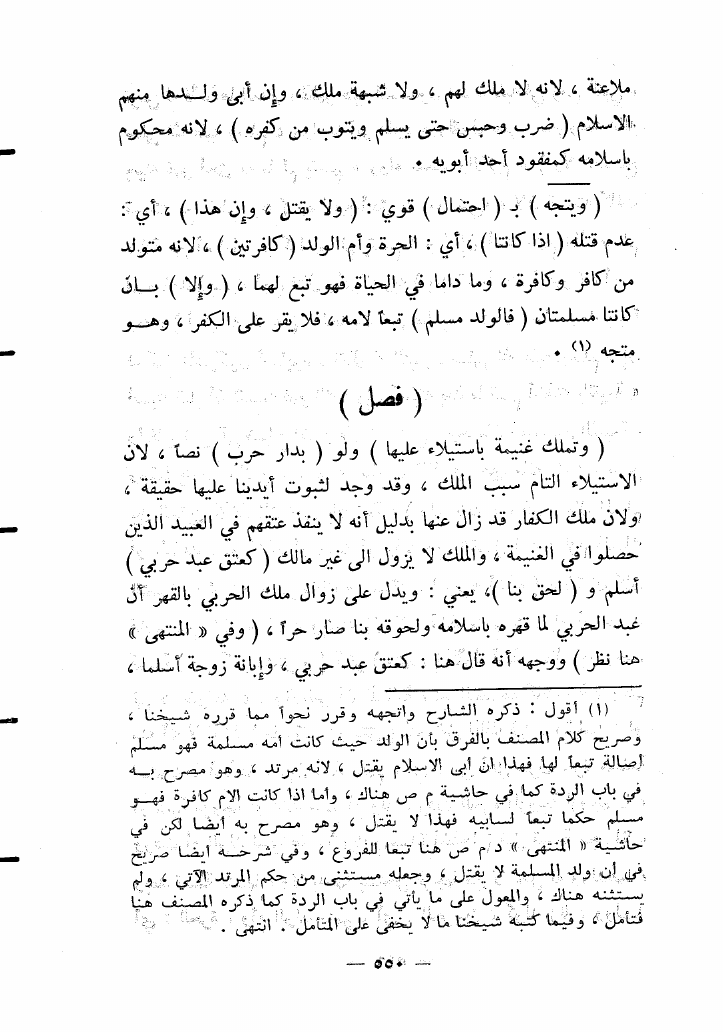 ملاعنة ، لانه لا ملك لهم ، ولا شبهة ملك ، وإن أبى ولـــدها منهم
الاسلام ( ضرب وحبس حتى يسلم ويتوب من كفره ) ، لانه محكوم
باسلامه كمفقود أحد أبويه .
( ويتجه ) بـ ( احتمال ) قوي : ( ولا يقتل ، وإن هذا ) ، أي :
عدم قتله ( اذا كانتا ) ، أي : الحرة وأم الولد ( كافرتين ) ، لانه متولد
من كافر وكافرة ، وما داما في الحياة فهو تبع لهما ، ( وإلا ) بــان
كانتا مسلمتان ( فالولد مسلم ) تبعاً لامه ، فلا يقر على الكفر ، وهــو
متجه (١) .
( فصل )
( وتملك غنيمة باستيلاء عليها ) ولو ( بدار حرب ) نصاً ، لان
الاستيلاء التام سبب الملك ، وقد وجد لثبوت أيدينا عليها حقيقة ،
ولان ملك الكفار قد زال عنها بدليل أنه لا ينفذ عتقهم في العبيد الذين
حصلوا في الغنيمة ، والملك لا يزول الى غير مالك ( كعتق عبد حربي )
أسلم و ( لحق بنا )، يعني : ويدل على زوال ملك الحربي بالقهر أن
عبد الحربي لما قهره باسلامه ولحوقه بنا صار حراً ، ( وفي « المنتهى »
هنا نظر ) ووجهه أنه قال هنا : كعتق عبد حربي ، وإبانة زوجة أسلما ،
(١) أقول : ذكره الشارح واتجهه وقرر نحواً مما قرره شيخنا ،
وصريح كلام المصنف بالفرق بأن الولد حيث كانت أمه مسلمة فهو مسلم
إصالة تبعاً لها فهذا ان أبى الاسلام يقتل ، لانه مرتد ، وهو مصرح بــه
في باب الردة كما في حاشية م ص هناك ، وأما اذا كانت الام كافرة فهــو
مسلم حكما تبعاً لسابيه فهذا لا يقتل ، وهو مصرح به أيضا لكن في
حاشية « المنتهى » د م ص هنا تبعا للفروع ، وفي شرحــه أيضا صريح
في أن ولد المسلمة لا يقتل ، وجعله مستثنى من حكم المرتد الآتي ، ولم
يستثنه هناك ، والمعول على ما يأتي في باب الردة كما ذكره المصنف هنا
فتأمل ، وفيما كتبه شيخنا ما لا يخفى على المتأمل . انتهى .
— ٥٥٠ —